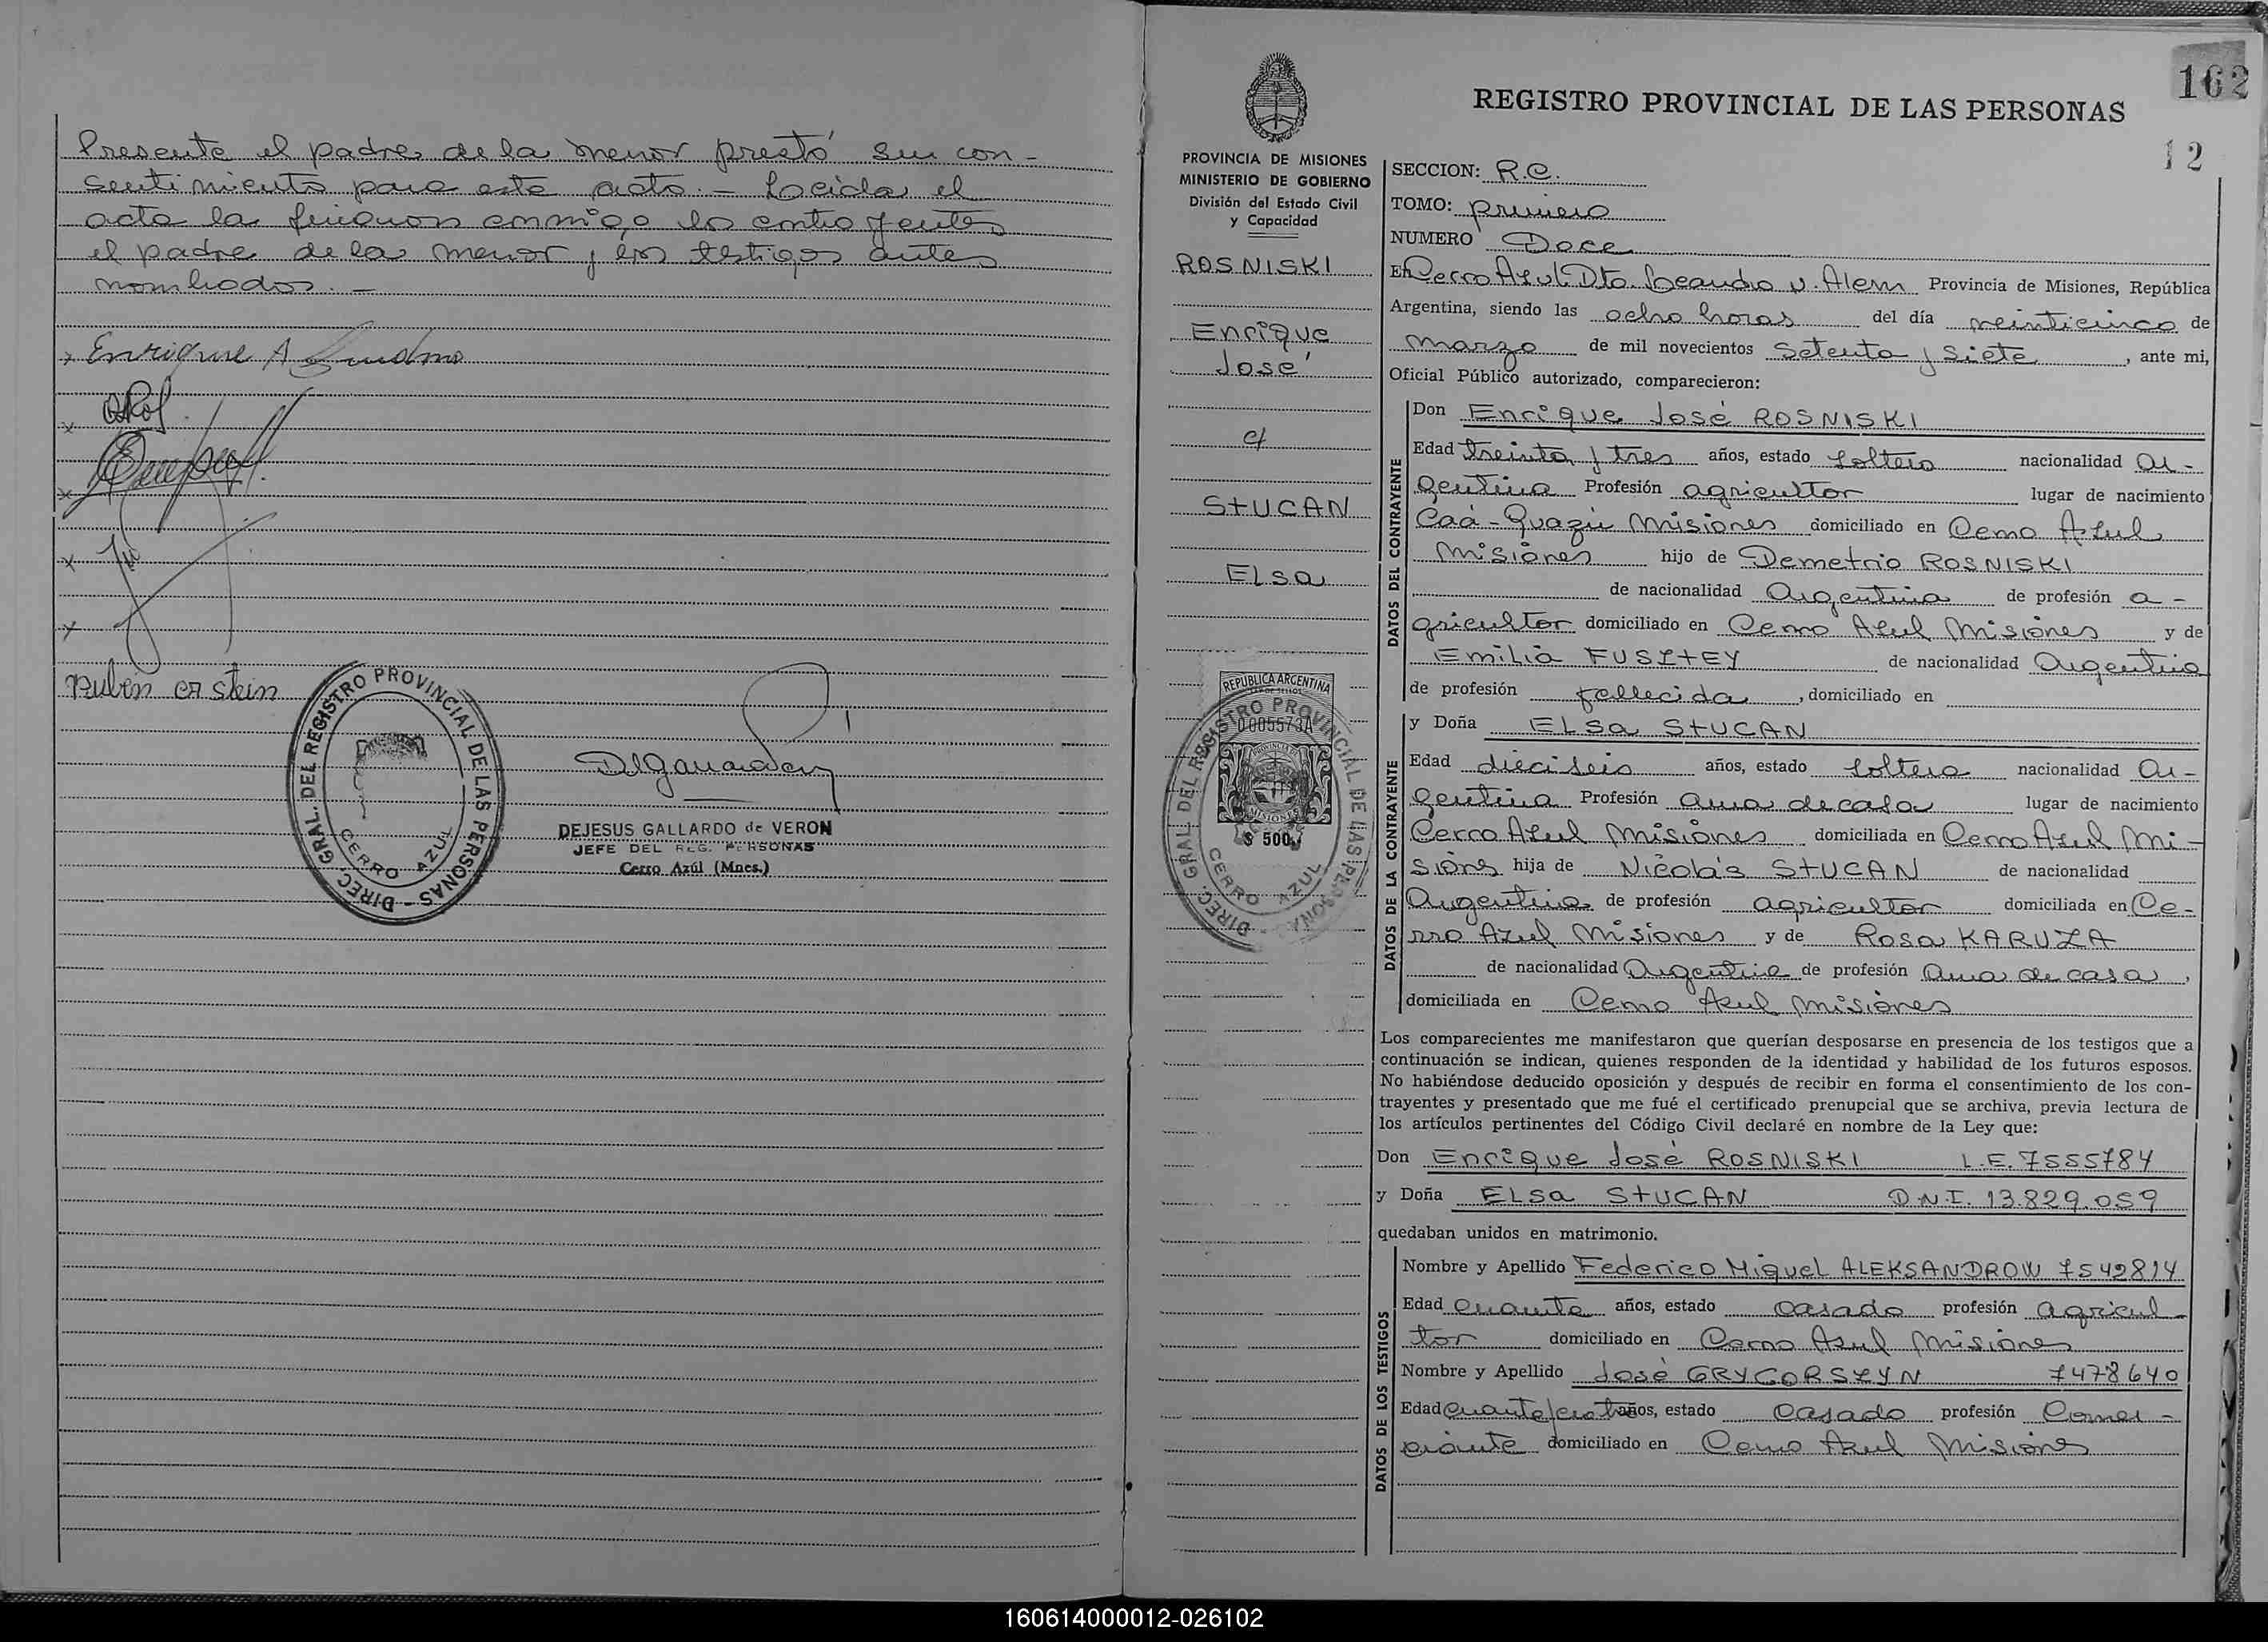 Presente el padre de la menor prestó su con-
sentimiento para este acto. - Leida el
acta la firman conmigo los contrayentes
el padre de la menor y los testigos antes
nombrados. -
x Enrique A
x
x
x
x
Ruben
DIREC. GRAL. DEL REGISTRO PROVINCIAL DE LAS PERSONAS -
CERRO AZUL
DEJESUS GALLARDO de VERON
JEFE DEL REG. PERSONAS
Cerro Azúl (Mnes.)
162
REGISTRO PROVINCIAL DE LAS PERSONAS
12
PROVINCIA DE MISIONES
MINISTERIO DE GOBIERNO
División del Estado Civil
y Capacidad
ROSNISKI
Enrique
José
c/
STUCAN
ELSA
REPUBLICA ARGENTINA
0005573A
MISIONES
$ 500
DIREC. GRAL. DEL REGISTRO PROVINCIAL DE LAS PERSONAS
CERRO AZUL
SECCION: R.C.
TOMO: primero
NUMERO Doce
En Cerro Azul Dto. Leandro N. Alem Provincia de Misiones, República
Argentina, siendo las ocho horas del día veinticinco de
marzo de mil novecientos setenta y siete, ante mi,
Oficial Público autorizado, comparecieron:
DATOS DEL CONTRAYENTE
Don Enrique José ROSNISKI
Edad treinta y tres años, estado soltero nacionalidad ar-
gentina Profesión agricultor lugar de nacimiento
Caá-Guazú Misiones domiciliado en Cerro Azul
Misiones hijo de Demetrio ROSNISKI
de nacionalidad Argentina de profesión a-
gricultor domiciliado en Cerro Azul Misiones y de
Emilia FUSZTEY de nacionalidad Argentina
de profesión fallecida, domiciliado en
DATOS DE LA CONTRAYENTE
y Doña ELSA STUCAN
Edad dieciseis años, estado soltera nacionalidad Ar-
gentina Profesión ama de casa lugar de nacimiento
Cerro Azul Misiones domiciliada en Cerro Azul Mi-
siones hija de Nicolás STUCAN de nacionalidad
Argentina de profesión agricultor domiciliada en Ce-
rro Azul Misiones y de Rosa KARUZA
de nacionalidad Argentina de profesión ama de casa,
domiciliada en Cerro Azul Misiones
Los comparecientes me manifestaron que querían desposarse en presencia de los testigos que a
continuación se indican, quienes responden de la identidad y habilidad de los futuros esposos.
No habiéndose deducido oposición y después de recibir en forma el consentimiento de los con-
trayentes y presentado que me fué el certificado prenupcial que se archiva, previa lectura de
los artículos pertinentes del Código Civil declaré en nombre de la Ley que:
Don Enrique José ROSNISKI L.E. 7555784
y Doña ELSA STUCAN D.N.I. 13.829.059
quedaban unidos en matrimonio.
DATOS DE LOS TESTIGOS
Nombre y Apellido Federico Miguel ALEKSANDROW 7542814
Edad cuarenta años, estado casado profesión agricul-
tor domiciliado en Cerro Azul Misiones
Nombre y Apellido José GRYGORSZYN 7478640
Edad cuarenta y cuatro años, estado casado profesión Comer-
ciante domiciliado en Cerro Azul Misiones
160614000012-026102